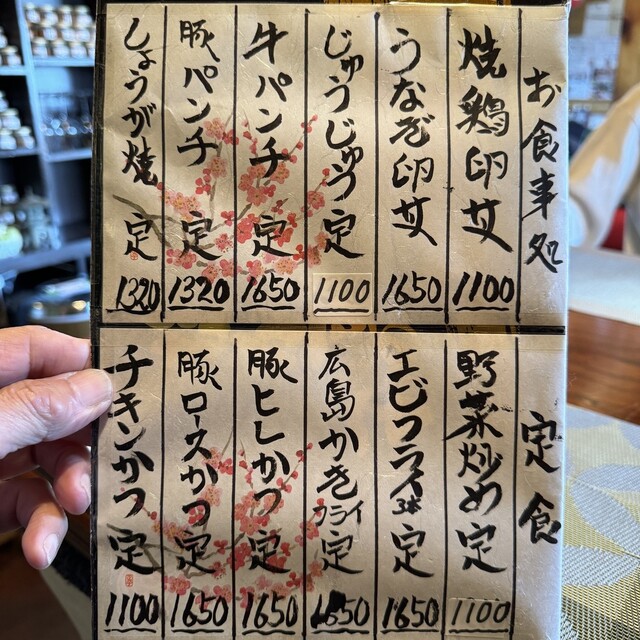 お食事処
焼鶏卵丼 1100
うなぎ卵丼 1650
じゅうじゅう定 1100
牛パンチ定 1650
豚パンチ定 1320
しょうが焼定 1320
定食
野菜炒め定 1100
エビフライ3本定 1650
広島かきフライ定 1650
豚ヒレかつ定 1650
豚ロースかつ定 1650
チキンかつ定 1100